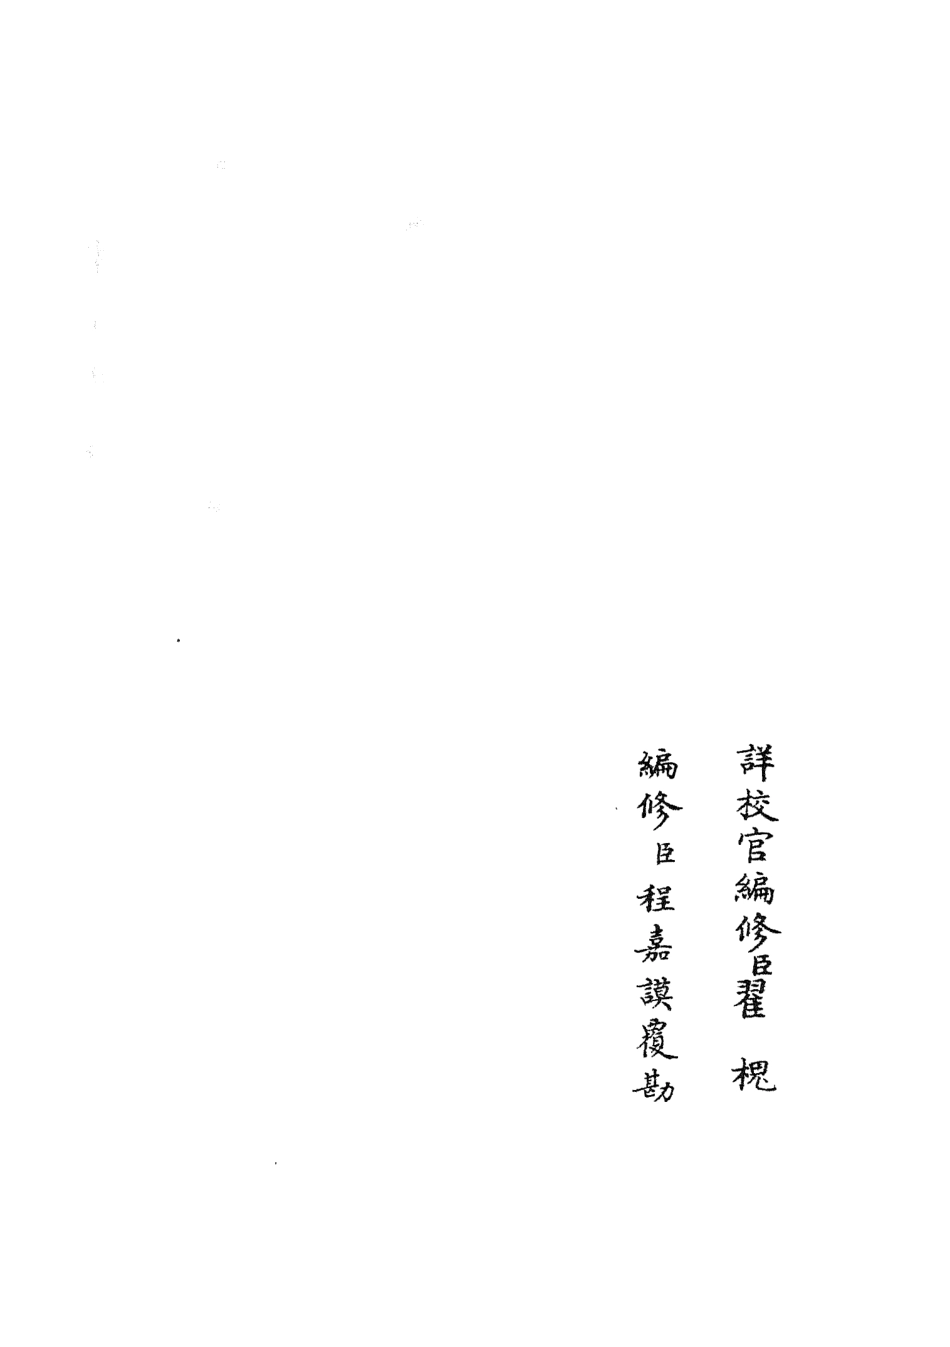 詳校官編修臣翟 槐
編修臣程嘉謨覆勘